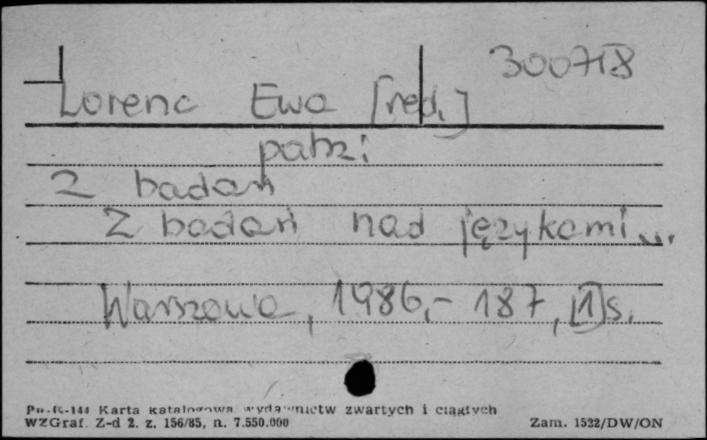 300718
Lorenc Ewa [red.]
patrz:
Z badań
Z badań nad językami...
Warszawa, 1986.- 187, [1] s.
Pu-K-144 Karta katalogowa wydawnictw zwartych i ciągłych
WZGraf. Z-d 2. z. 156/85, n. 7.550.000
Zam. 1532/DW/ON